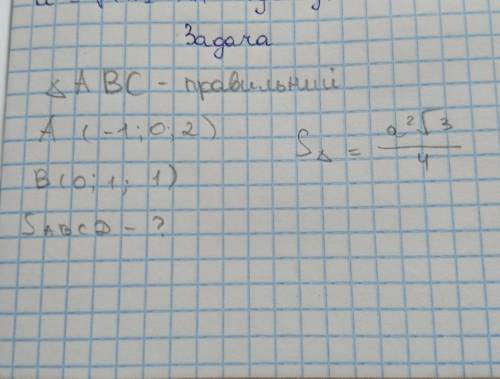 Задача
△ ABC - правильний
A (-1; 0; 2)
B(0; 1; 1)
S△ = a²√3 / 4
SABCD - ?